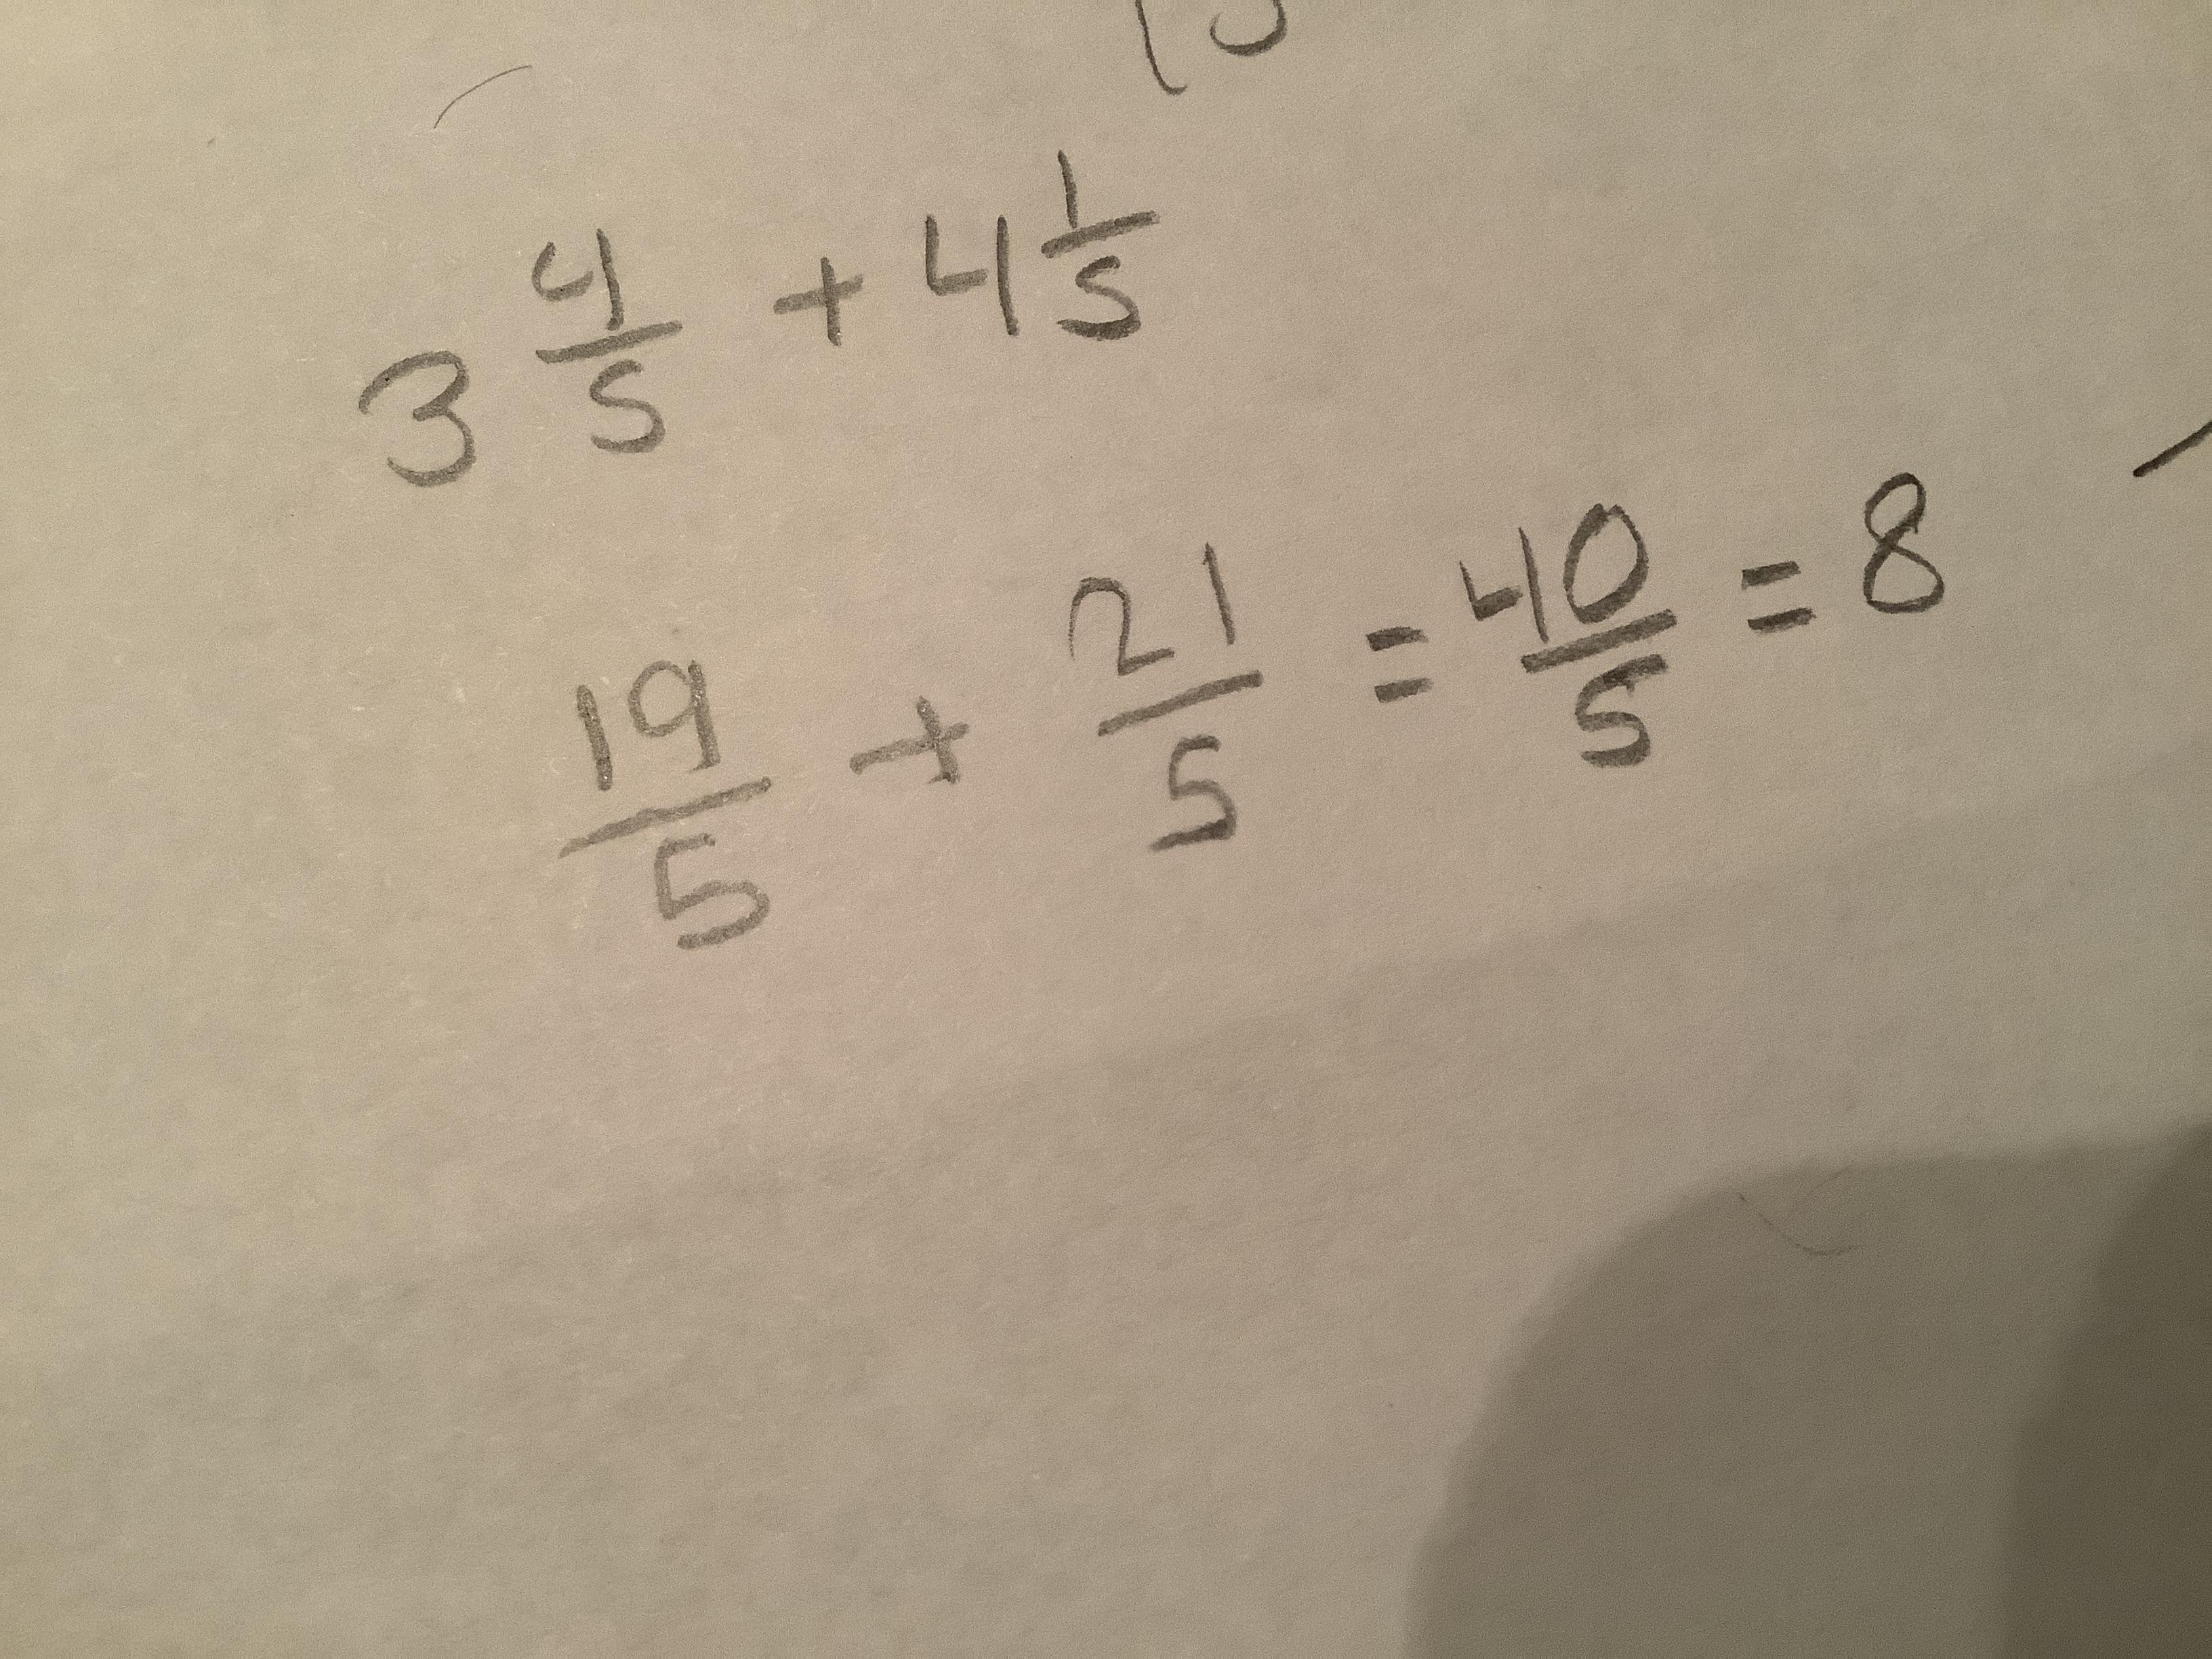 3 4/5 + 4 1/5
19/5 + 21/5 = 40/5 = 8